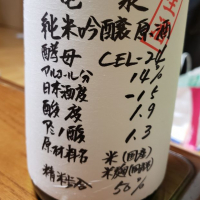 亀泉
純米吟醸原酒
酵母 CEL-24
アルコール分 14%
日本酒度 -15
酸度 1.9
アミノ酸 1.3
原材料名 米(国産)
米麹(国産米)
精米歩合 50%